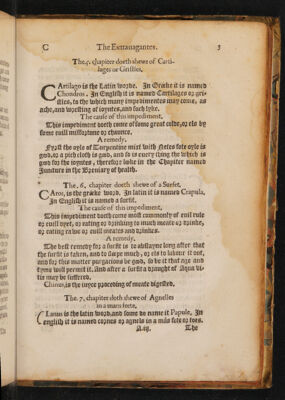 C The Extrauagantes. 3
The.5. chapiter doeth shewe of Carti-
lages or Gristles.
CArtilago is the Latin worde. In Greeke it is named
Chondros. In English it is named Cartilages or gri-
stles, in the which many impedimentes may come, as
ache, and wresting of ioyntes, and such lyke.
The cause of this impediment.
This impediment doeth come of some great colde, or els by
some euill misfortune or chaunce.
A remedy.
Fyrst the oyle of Turpentine mixt with Netes fote oyle is
good, or a pitch cloth is good, and so is euery thing the which is
good for the ioyntes, therefore loke in the Chapiter named
Juncture in the Breuiary of health.
The .6. chapiter doth shewe of a Surfet.
CAros, is the greke word. In latin it is named Crapula,
In English it is named a surfit.
The cause of this impediment.
This impediment doeth come most commonly of euil rule
or euill dyet, or eating or drinking to much meate or drinke,
or eating rawe or euill meates and drinkes.
A remedy.
The best remedy for a surfit is to abstayne long after that
the surfit is taken, and to slepe much, or els to labour it out,
and for this matter purgacions be good, so be it that age and
tyme woll permit it. And after a surfit a draught of Aqua vi-
te may be suffered.
is the iuyce proceding of meate digested.
The 7. chapiter doth shewe of Agnelles
in a mans feete.
is the latin word, and some do name it Papule, In
english it is named cornes or agnels in a mãs fete or toes.
A.iij. The